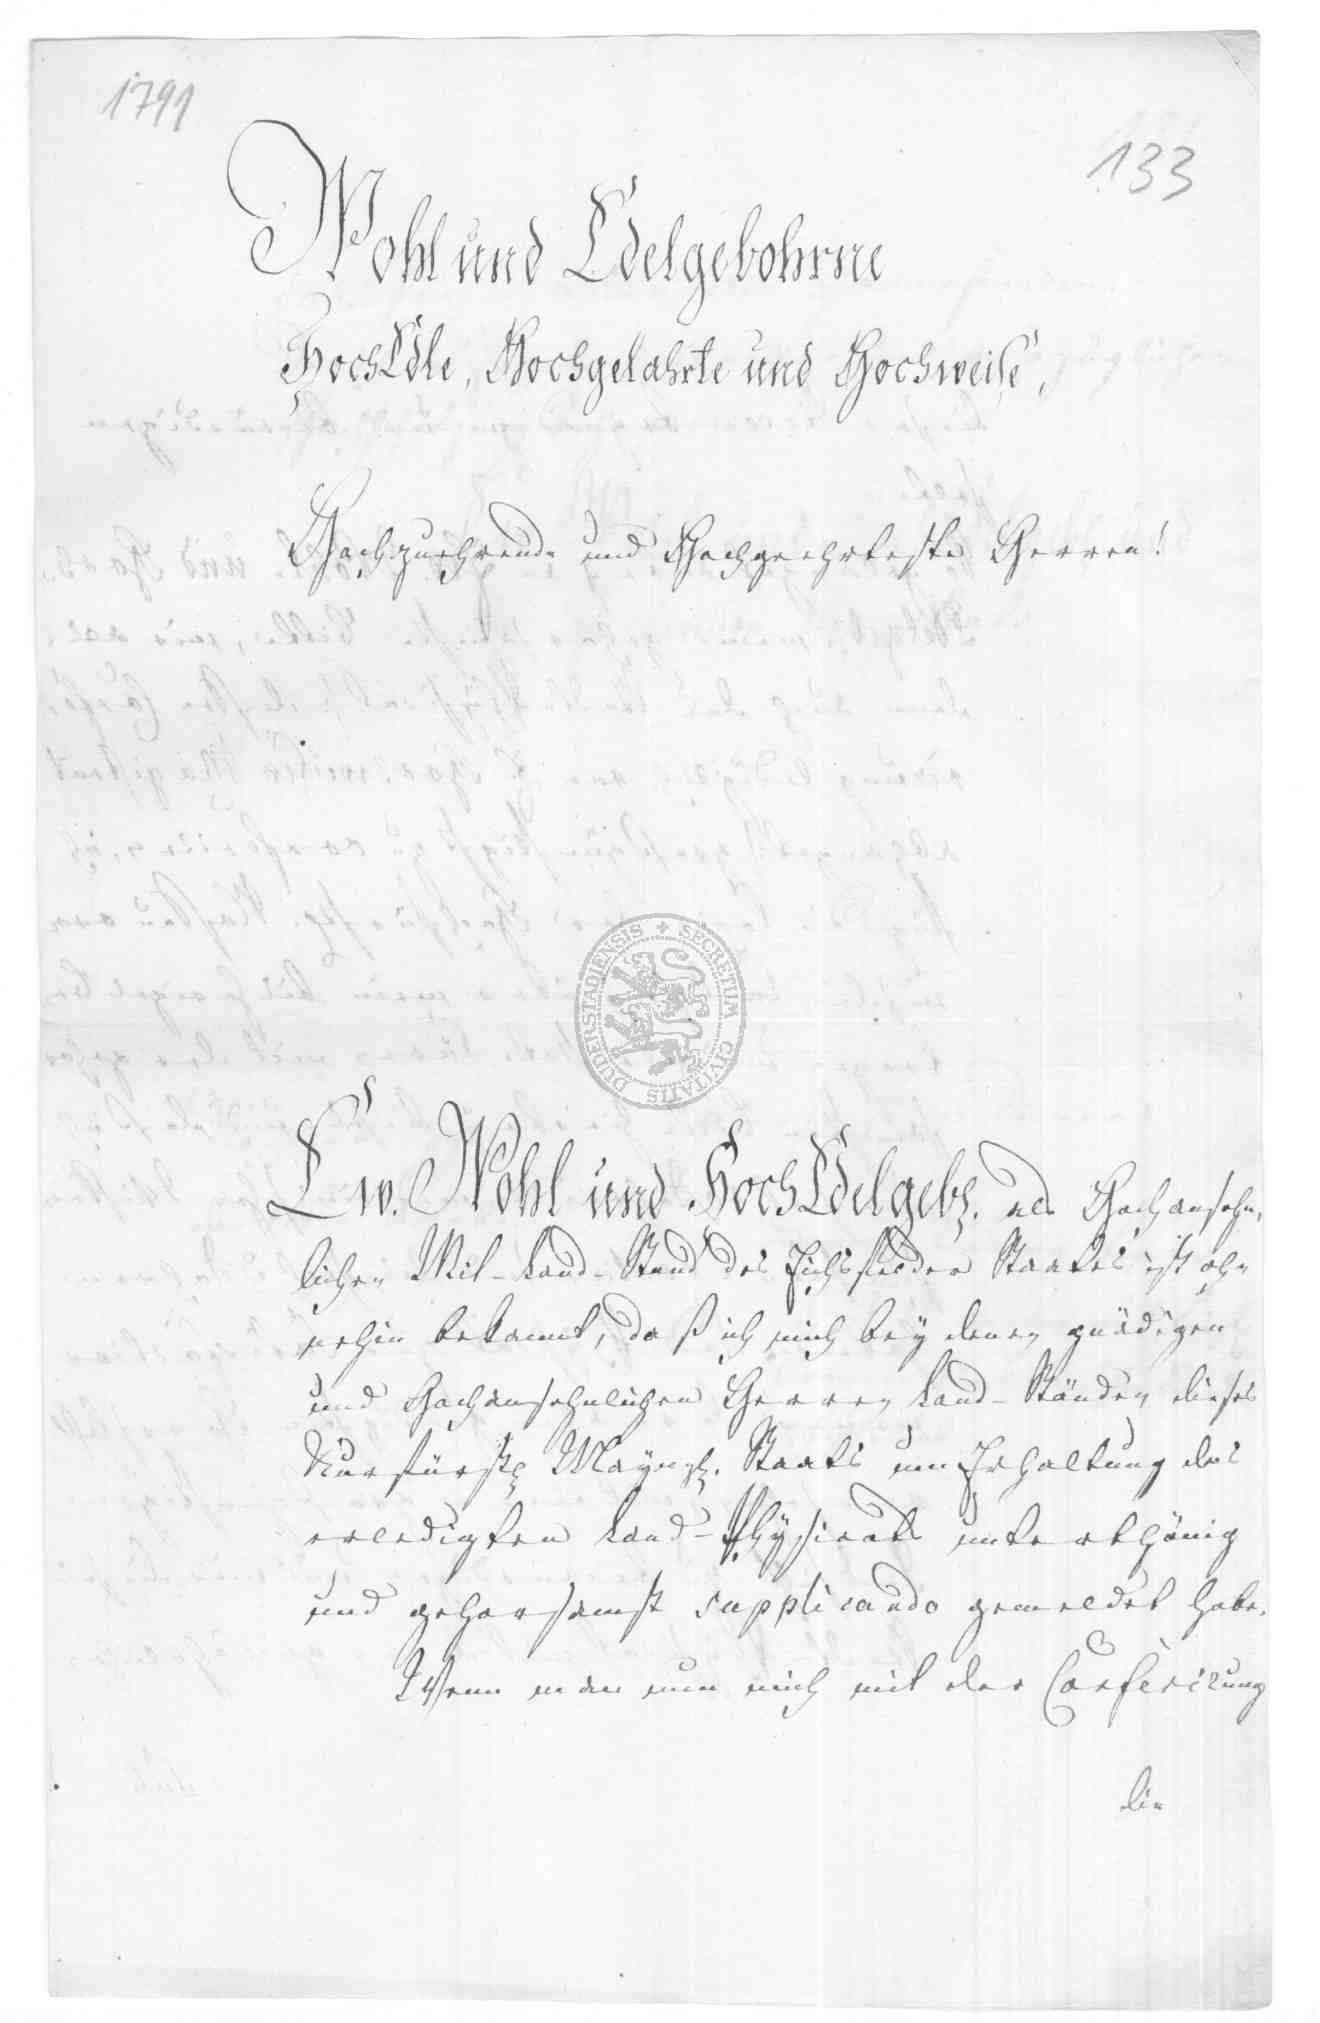 1791
133
Wohl und Edelgebohrne
HochEdle, Hochgelahrte und Hochweise,
Hochzuehrende und Hochgeehrteste Herren!
SECRETUM CIVITATIS DUDERSTADIENSIS
Ew. Wohl und HochEdelgeb. als Hochansehn,
lichen Mit-Land-Stand des Eichsfelder Staates ist oh,
nehin bekannt, daß ich mich bey denen gnädigen
und Hochansehnlichen Herren Land-Ständen dieses
Kurfürstl. Maynzl. Staats um Erhaltung des
erledigten Land-Physicats unterthänig
und gehorsamst supplicando gemeldet habe.
Wenn man nun mich mit der Conferirung
die